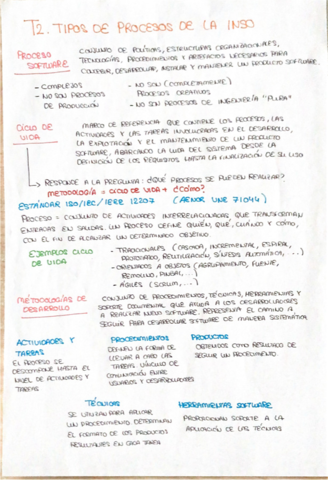 T2. TIPOS DE PROCESOS DE LA INSO
PROCESO SOFTWARE
CONJUNTO DE POLÍTICAS, ESTRUCTURAS ORGANIZACIONALES,
TECNOLOGÍAS, PROCEDIMIENTOS Y ARTEFACTOS NECESARIOS PARA
CONCEBIR, DESARROLLAR, INSTALAR Y MANTENER UN PRODUCTO SOFTWARE.
- COMPLEJOS
- NO SON PROCESOS
DE PRODUCCIÓN
- NO SON (COMPLETAMENTE)
PROCESOS CREATIVOS
- NO SON PROCESOS DE INGENIERÍA "PURA"
CICLO DE VIDA
MARCO DE REFERENCIA QUE CONTIENE LOS PROCESOS, LAS
ACTIVIDADES Y LAS TAREAS INVOLUCRADAS EN EL DESARROLLO,
LA EXPLOTACIÓN Y EL MANTENIMIENTO DE UN PRODUCTO
SOFTWARE, ABARCANDO LA VIDA DEL SISTEMA DESDE LA
DEFINICIÓN DE LOS REQUISITOS HASTA LA FINALIZACIÓN DE SU USO
RESPONDE A LA PREGUNTA: ¿QUÉ PROCESOS SE PUEDEN REALIZAR?
METODOLOGÍA = CICLO DE VIDA + ¿CÓMO?
ESTÁNDAR ISO/IEC/IEEE 12207 (AENOR UNE 71044)
PROCESO = CONJUNTO DE ACTIVIDADES INTERRELACIONADAS, QUE TRANSFORMAN
ENTRADAS EN SALIDAS. UN PROCESO DEFINE QUIÉN, QUÉ, CUÁNDO Y CÓMO,
CON EL FIN DE ALCANZAR UN DETERMINADO OBJETIVO
EJEMPLOS CICLO
DE VIDA
- TRADICIONALES (CASCADA, INCREMENTAL, ESPIRAL,
PROTOTIPADO, REUTILIZACIÓN, SÍNTESIS AUTOMÁTICA, ...)
- ORIENTADOS A OBJETOS (AGRUPAMIENTO, FUENTE,
REMOLINO, PINBALL, ...)
- ÁGILES (SCRUM, ...)
METODOLOGÍAS DE
DESARROLLO
CONJUNTO DE PROCEDIMIENTOS, TÉCNICAS, HERRAMIENTAS Y
SOPORTE DOCUMENTAL QUE AYUDA A LOS DESARROLLADORES
A REALIZAR NUEVO SOFTWARE. REPRESENTA EL CAMINO A
SEGUIR PARA DESARROLLAR SOFTWARE DE MANERA SISTEMÁTICA
ACTIVIDADES Y
TAREAS
EL PROCESO SE
DESCOMPONE HASTA EL
NIVEL DE ACTIVIDADES Y
TAREAS
PROCEDIMIENTOS
DEFINEN LA FORMA DE
LLEVAR A CABO LAS
TAREAS. VÍNCULO DE
COMUNICACIÓN ENTRE
USUARIOS Y DESARROLLADORES
PRODUCTOS
OBTENIDOS COMO RESULTADO DE
SEGUIR UN PROCEDIMIENTO.
TÉCNICAS
SE UTILIZAN PARA APLICAR
UN PROCEDIMIENTO. DETERMINAN
EL FORMATO DE LOS PRODUCTOS
RESULTANTES EN CADA TAREA
HERRAMIENTAS SOFTWARE
PROPORCIONAN SOPORTE A LA
APLICACIÓN DE LAS TÉCNICAS